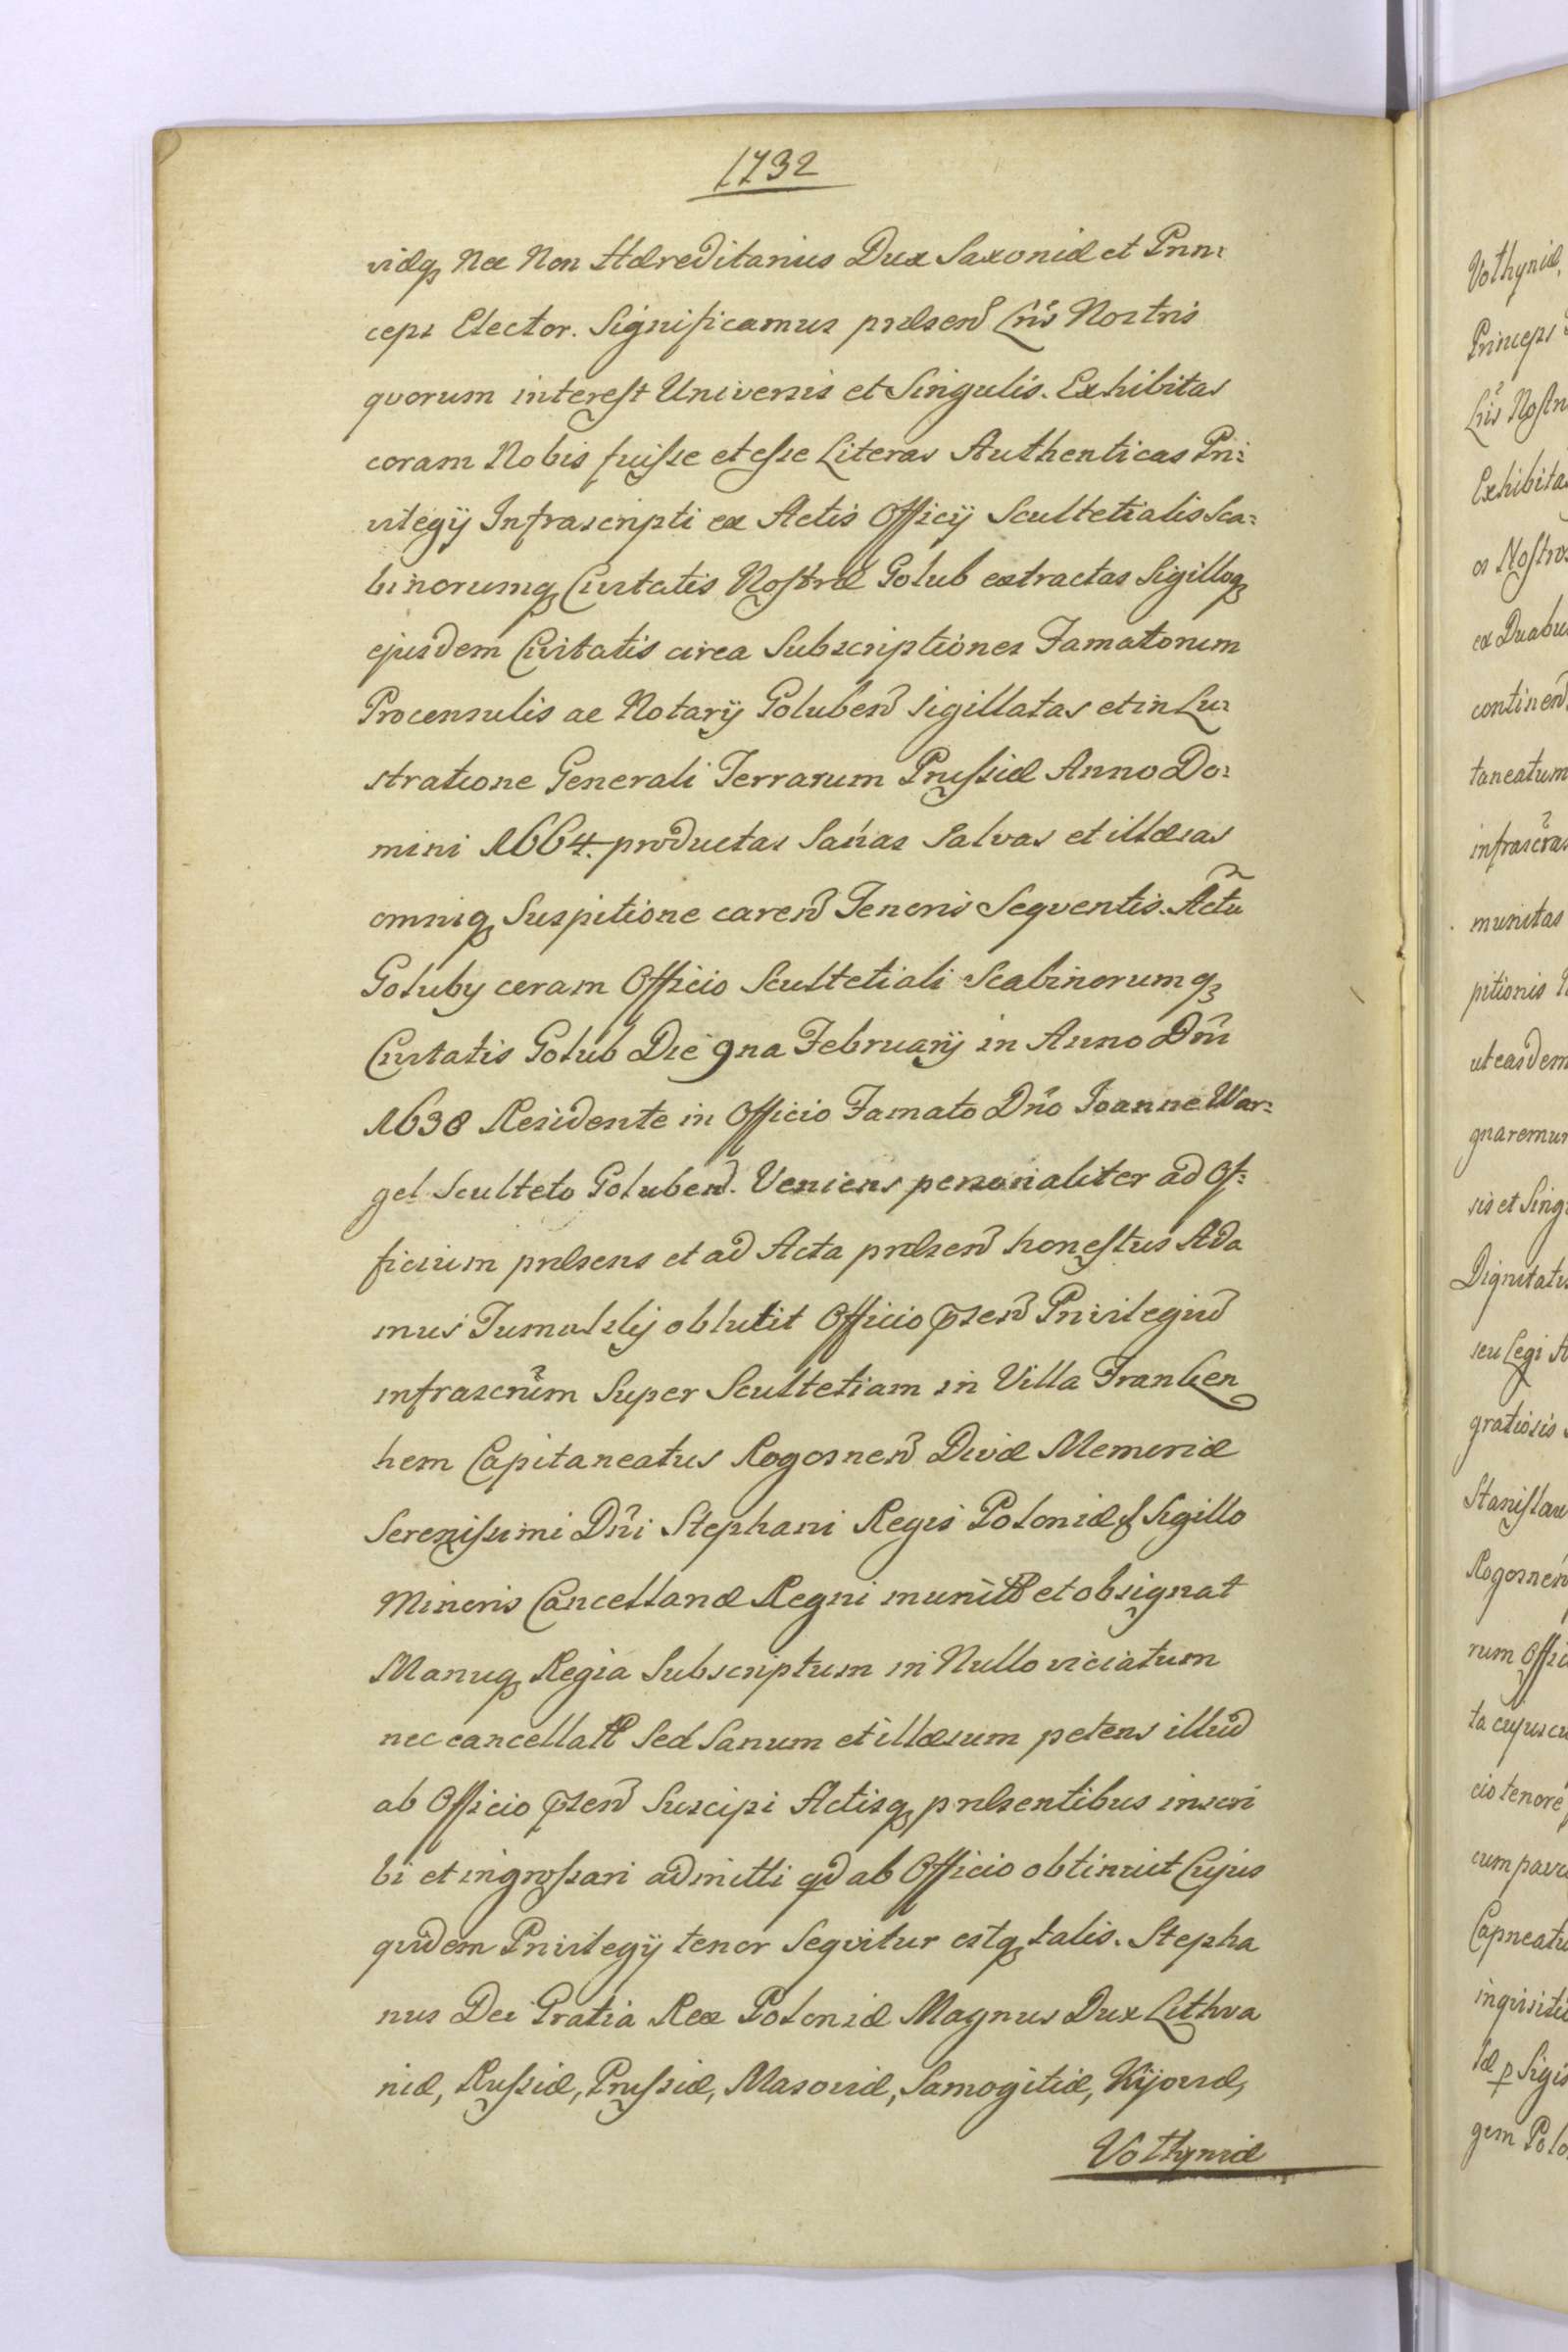 1732
viæq, Nec Non Hæreditarius Dux Saxoniæ et Prin:
ceps Elector. Significamus præsen̄ Lr̄is Nostris
quorum interest Universis et Singulis. Exhibitas
coram Nobis fuisse et esse Literas Authenticas Pri:
vilegij Infrascripti ex Actis Officij Scultetialis Sca:
binorumq, Civitatis Nostræ Golub extractas Sigilloq,
ejusdem Civitatis circa Subscriptiones Famatorum
Proconsulis ac Notarij Goluben̄ sigillatas et in Lu:
stratione Generali Terrarum Prussiæ Anno Do:
mini 1664. productas Sanas Salvas et illæsas
omniq, Suspitione caren̄ Tenoris Seqventis. Actū
Goluby coram Officio Scultetiali Scabinorumq,
Civitatis Golub Die 9na February in Anno Dn̄i
1638 Residente in Officio Famato Dn̄o Joanne War:
gel Sculteto Goluben̄. Veniens personaliter ad Of:
ficium præsens et ad Acta præsen̄ honestus Ada
mus obtulit Officio præsen̄ Privilegiū
infrascrūm Super Scultetiam in Villa Franken
hem Capitaneatus Rogosnen̄ Divæ Memoriæ
Serenissimi Dn̄i Stephani Regis Poloniæ Sigillo
Minoris Cancellariæ Regni munitū et obsignat
Manuq, Regia Subscriptum in Nullo viciatum
nec cancellatū Sed Sanum et illæsum petens illud
ab Officio præsen̄ Suscipi Actisq, præsentibus inscri
bi et ingrossari admitti qd ab Officio obtinuit Cujus
quidem Privilegij tenor Seqvitur estq, talis. Stepha
nus Dei Gratia Rex Poloniæ Magnus Dux Lithva
niæ, Russiæ, Prussiæ, Masoviæ, Samogitiæ, Kijoviæ,
Volhyniæ
Volhyniæ,
Princeps
Lr̄is Nostr
Exhibita
os Nostros
ex Duabu
continen̄
taneatum
infrascr̄as
munitas
pitionis
ut easdem
gnaremur
sis et Sing
Dignitatis
seu Legi
gratiosis
Stanislau
Rogosnen̄
rum Offic
ta cujuscu
cio tenore
cum
Capneatu
inqvisitio
Sigis
gem Polo